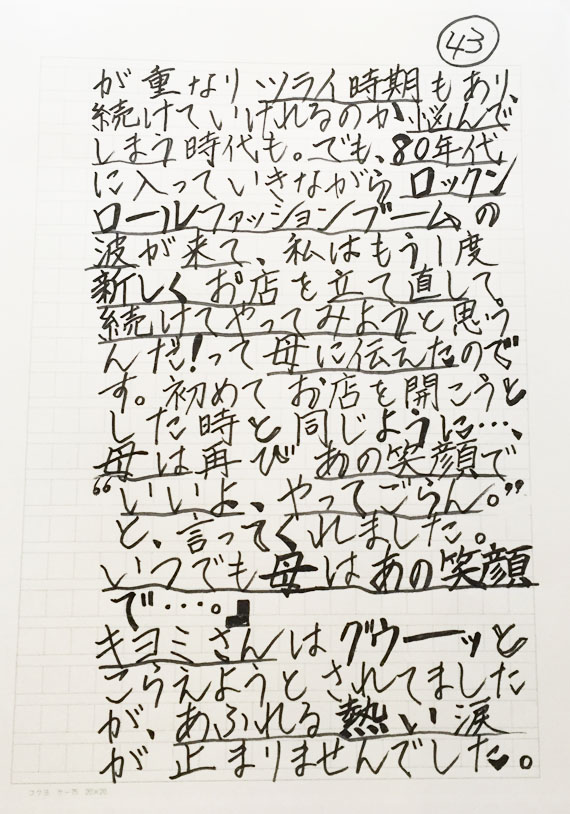 43
が重なりツライ時期もあり、
続けていけれるのか、悩んで
しまう時代も。でも、80年代
に入っていきながら ロックン
ロールファッションブームの
波が来て、私はもう1度
新しくお店を立て直して、
続けてやってみようと思う
んだ!って母に伝えたので
す。初めてお店を開こうと
した時と同じように…、
母は再び あの笑顔で
“いいよ、やってごらん。”
と、言ってくれました。
いつでも母はあの笑顔
で…。
キヨミさんは グウーーッと
こらえようとされてました
が、あふれる熱い涙
が止まりませんでした。
コクヨ ケー75 20×20